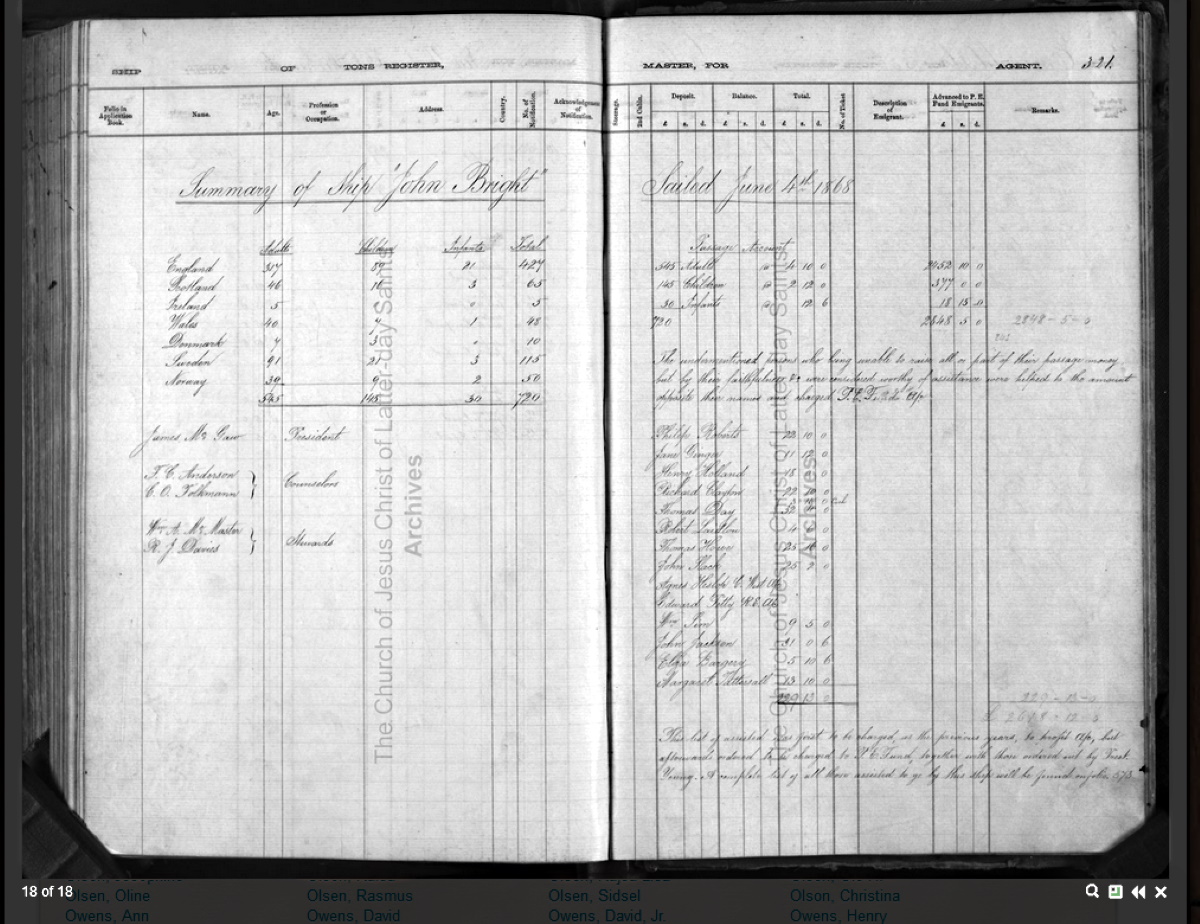 SHIP OF TONS REGISTER,
MASTER, FOR AGENT. 321.
Folio in Application Book. Name. Age. Profession or Occupation. Address. Country. No. of Notification. Acknowledgment of Notification.
Steerage. 2nd Cabin. Deposit. Balance. Total. No. of Ticket Description of Emigrant. Advanced to P. E. Fund Emigrants. Remarks.
£ s. d. £ s. d. £ s. d. £ s. d.
Summary of Ship "John Bright"
Sailed June 4th 1868
Adults Children Infants Total
England 317 89 21 427
Scotland 46 16 3 65
Ireland 5 0 5
Wales 40 7 1 48
Denmark 7 3 0 10
Sweden 91 21 3 115
Norway 39 9 2 50
545 145 30 720
James Mc Gaw President
T. C. Anderson
C. O. Folkmann
Counselors
Wm A. Mc Master
R. J. Davies
Stewards
Passage Account
545 Adults @ 4 10 0 2452 10 0
145 Children @ 2 12 0 377 0 0
30 Infants @ 12 6 18 15 0
720 2848 5 0 2848-5-0
The undermentioned persons who being unable to raise all or part of their passage money
but by their faithfulness &c were considered worthy of assistance were helped to the amount
opposite their names and charged P. E. F. A/c
Philip Roberts 22 10 0
Jane Ginger 11 12 0
Henry Holland 18
Richard Clayton 22 10
Thomas Day 32
Robert 4 0
Thomas 25 0
John 25 2 0
Agnes C. West A/c
Edward R. E. A/c
Wm Sim 9 5 0
John Jackson 31 0 6
Eliza 5 10 6
Margaret Tattersall 13 10 0
229 13 0
229-13-0
£ 2618-12-0
This list of assisted was first to be charged, as the previous years, to profit A/c, but
afterwards ordered to be charged to P. E. Fund, together with those ordered out by Prest.
Young. A complete list of all those assisted to go by this ship will be found on folio 573
The Church of Jesus Christ of Latter-day Saints
Archives
The Church of Jesus Christ of Latter-day Saints
Archives
18 of 18
Olsen, Oline Olsen, Rasmus Olsen, Sidsel Olsen, Christina
Owens, Ann Owens, David Owens, David, Jr. Owens, Henry